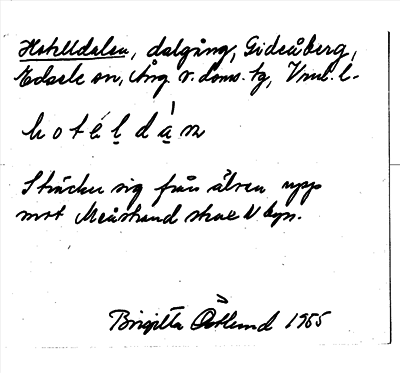 Hotelldalen, dalgång, Gideåberg,
Edsele sn, Ång v. doms. tg, Vnl. l.
hoteldan
Sträcker sig från älven upp
mot Meåstrand N byn.
Birgitta Östlund 1965